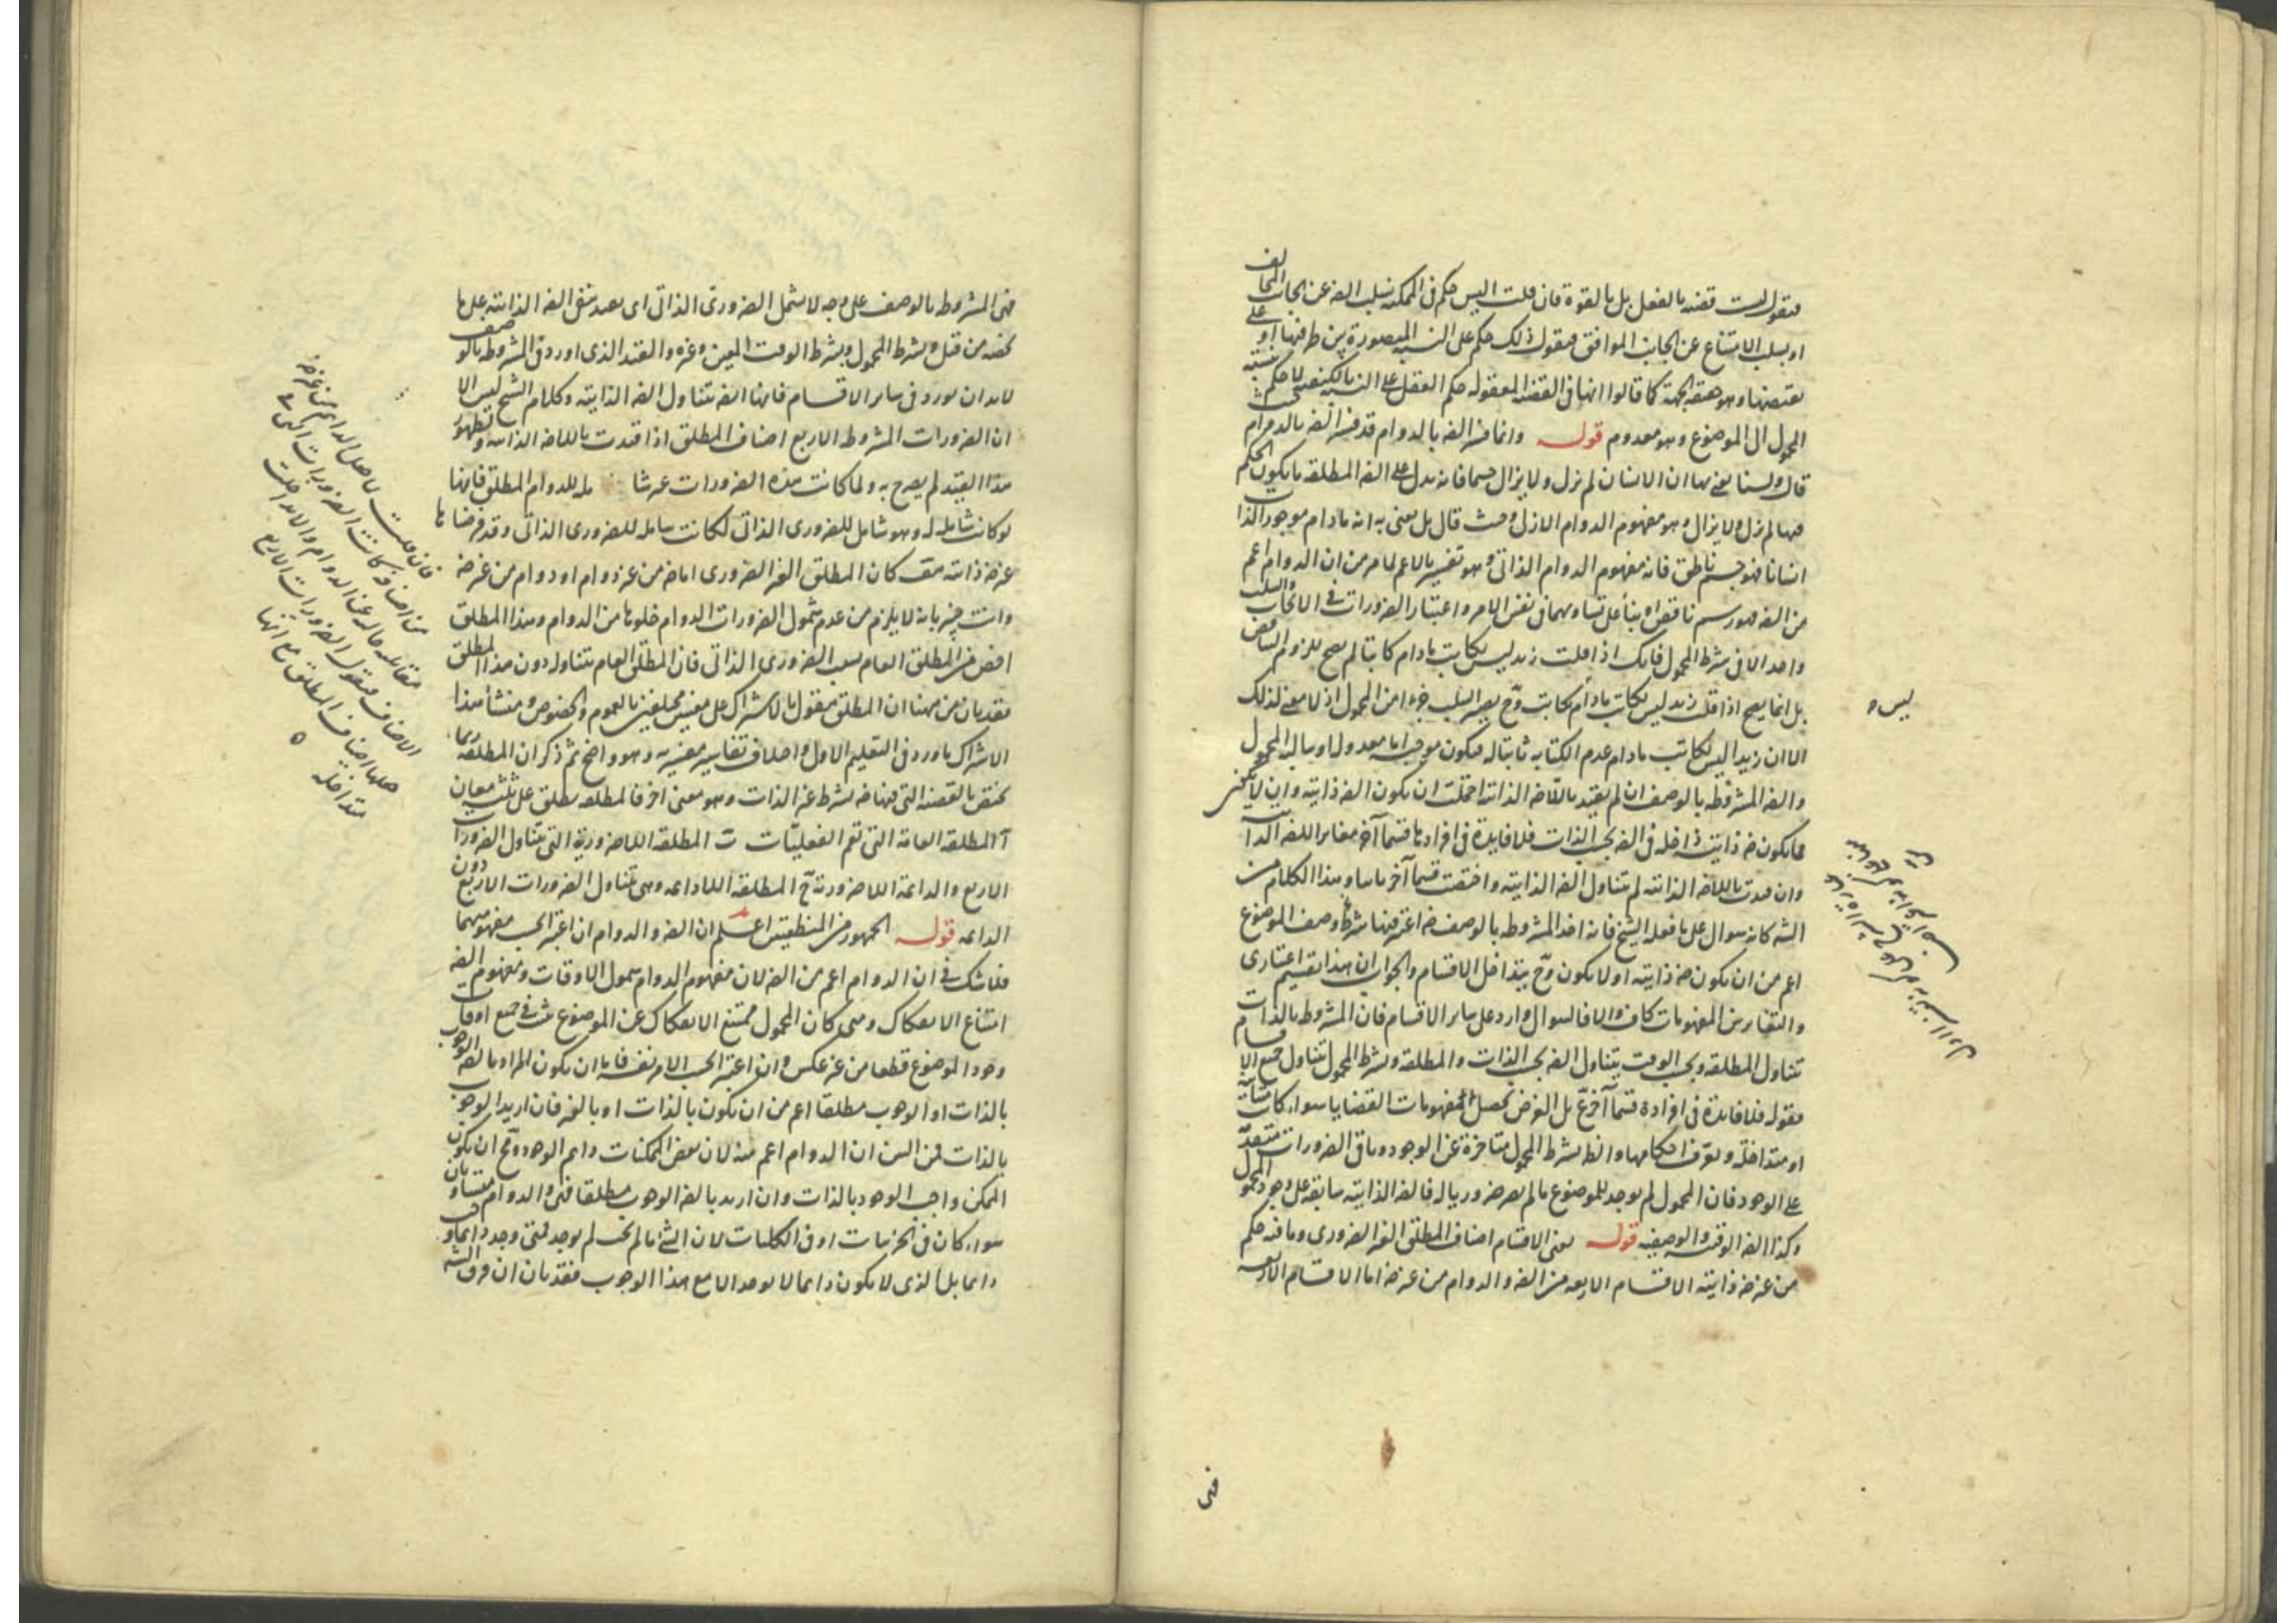 فنقول ليست قضية بالفعل بل بالقوة فان قلت اليس حكم في الممكنة بسلب الضه عن الجانب المخالف
او بسلب الامتناع عن الجانب الموافق فنقول ذلك حكم على النسبة المتصورة بين طرفيها او على
نقيضها وهو هيئة الجهة كما قالوا انها في القضية المعقولة حكم العقل على النسبة بالكيفية لا حكم بنسبة
المحمول الى الموضوع وهو معدوم قوله وانما فسر الضه بالدوام قد فسر الضه بالدوام حيث
قال ولسنا نعني بها ان الانسان لم يزل ولا يزال جسما فانه يدل على الضه المطلقة ما يكون الحكم
فيها لم يزل ولا يزال وهو مفهوم الدوام الازلي وحيث قال بل نعني به انه مادام موجود الذات
انسانا فهو جسم ناطق فانه مفهوم الدوام الذاتي وهو تفسير بالاعم لما مر من ان الدوام اعم
من الضه فهو رسم ناقص او بناء على تساويهما في نفس الامر واعتبار الضرورات في الايجاب والسلب
واحد الا في شرط المحمول فانك اذا قلت زيد ليس بكاتب مادام كاتبا لم يصح للزوم التناقض
بل انما يصح اذا قلت زيد ليس بكاتب مادام بكاتب وح يصير السلب جزءا من المحمول اذ لا معنى لذلك
الا ان زيدا ليس بكاتب مادام عدم الكتابة ثابتا له فيكون موجبة اما معدولة او سالبة المحمول
والضه المشروطة بالوصف ان لم يقيد باللاضه الذاتية احتملت ان يكون الضه ذاتية وان لا يكون
فما يكون ضه ذاتية داخلة في الضه بحسب الذات فلا فايدة في افرادها قسما آخر مغايرا للضه الذاتية
وان قيدت باللاضه الذاتية لم يتناول الضه الذاتية واختصت قسما آخر مباينا وهذا الكلام من
الشه كانه سوال على ما فعله الشيخ فانه اخذ المشروطة بالوصف ضه اعتبر فيها شرط وصف الموضوع
اعم من ان يكون ضه ذاتية او لا يكون وح يتداخل الاقسام والجواب ان هذا تقسيم اعتباري
والتغاير بين المفهومات كاف والا فالسوال وارد على ساير الاقسام فان المشروط بالذات
تتناول المطلقة وبحسب الوقت يتناول الضه بحسب الذات والمطلقة وبشرط المحمول تتناول جميع الاقسام
فقوله فلا فايدة في افراده قسما آخر بل الغرض تحصيل مفهومات القضايا سواء كانت متباينة
او متداخلة وتعرف احكامها والضه بشرط المحمول متاخرة عن الوجود وباقي الضرورات متقدمة
على الوجود فان المحمول لم يوجد للموضوع ما لم يصر ضروريا له فالضه الذاتية سابقة على وجود المحمول
وكذا الضه الوقتية والوصفية قوله يعني الاقسام اصناف المطلق الغير الضروري وما فيه حكم
من غير ضه ذاتية الاقسام الاربعة من الضه والدوام من غير ضه اما الاقسام الاربعة
ليس ٥
فهي المشروطة بالوصف على وجه لا يشمل الضروري الذاتي اي بعد نفي الضه الذاتية على ما
بحثه من قبل وبشرط المحمول وبشرط الوقت المعين وغيره والقيد الذي اورد في المشروطة بالوصف
لابد ان يورد في ساير الاقسام فانها ايضه تتناول الضه الذاتية وكلام الشيخ ليس الا
ان الضرورات المشروطة الاربع اصناف المطلق اذا قيدت باللاضه الذاتية ولظهور
هذا القيد لم يصرح به ولما كانت هذه الضرورات غير شاملة للدوام المطلق فانها
لو كانت شاملة له وهو شامل للضروري الذاتي لكانت شاملة للضروري الذاتي وقد فرضناها
غير ضه ذاتية هف كان المطلق الغير الضروري اما ضه من غير دوام او دوام من غير ضه
وانت خبير بانه لا يلزم من عدم شمول الضرورات الدوام خلوها من الدوام وهذا المطلق
اخص من المطلق العام بسبب الضروري الذاتي فان المطلق العام يتناوله دون هذا المطلق
فقد بان من هيهنا ان المطلق مقول بالاشتراك على معنيين مختلفين بالعموم والخصوص ومنشأ هذا
الاشتراك ما ورد في التعليم الاول واختلاف تفاسير مفسريه وهو واضح ثم ذكر ان المطلقة ربما
تختص بالقضية التي فيها ضه بشرط غير الذات وهو معنى اخر فالمطلقة يطلق على ثلثة معان
آ المطلقة العامة التي تعم الفعليات ب المطلقة اللاضرورية التي تتناول الضرورات
الاربع والدائمة اللاضرورية ج المطلقة اللادائمة وهي تتناول الضرورات الاربع دون
الدائمة قوله الجمهور من المنطقيين اعلم ان الضه والدوام ان اعتبر بحسب مفهوميهما
فلا شك في ان الدوام اعم من الضه لان مفهوم الدوام شمول الاوقات ومفهوم الضه
امتناع الانفكاك ومتى كان المحمول ممتنع الانفكاك عن الموضوع ثبت في جميع اوقات
وجود الموضوع قطعا من غير عكس وان اعتبر بحسب الامر نفسه فاما ان يكون المراد بالضه الوجوب
بالذات او الوجوب مطلقا اعم من ان يكون بالذات او بالغير فان اريد الوجوب
بالذات فمن البين ان الدوام اعم منه لان بعض الممكنات دايم الوجود وح ان يكون
الممكن واجب الوجود بالذات وان اريد بالضه الوجوب مطلقا فهي والدوام متساويان
سواء كان في الجزئيات او في الكليات لان الشيء ما لم يجب لم يوجد فمتى وجد دايما وجب
دايما بل الذي لا يكون دايما لا يوجد الا مع هذا الوجوب فقد بان ان فرق الشه
فان قلت لا اصل الدوام من غير ضه
من اصنافه كانت الضرورات التي هي
مقابله خالية عن الدوام والا تداخلت
الاصناف فنقول الضرورات الاربع
جعلها اصناف المطلق مع انها
متداخلة ٥
فهي